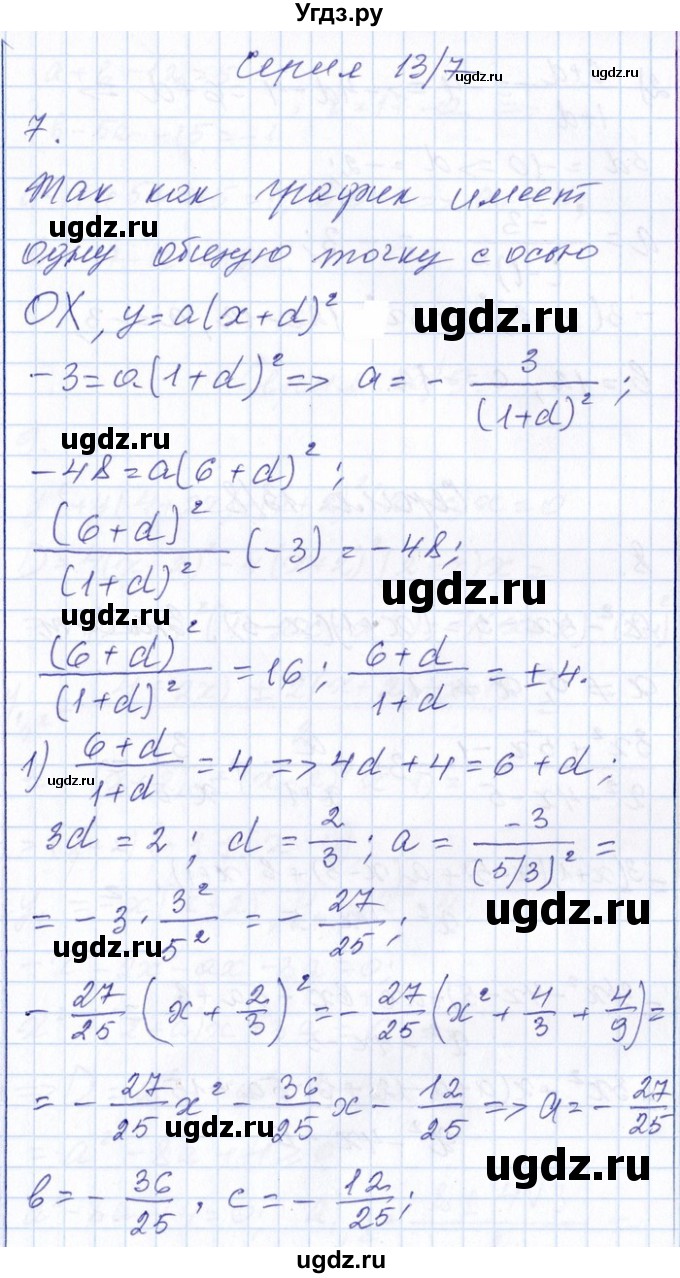 Угдз.ру
Серия 13/7
ugdz.ru ugdz.ru
7.
Так как график имеет
ugdz.ru
одну общую точку с осью
OX, y=a(x+d)²
ugdz.ru
-3=a(1+d)² => a = - 3/(1+d)²;
ugdz.ru
-48=a(6+d)²;
(6+d)²/(1+d)² (-3) = -48;
ugdz.ru
ugdz.ru
(6+d)²/(1+d)² = 16; (6+d)/(1+d) = ±4.
1) (6+d)/(1+d) = 4 => 4d+4=6+d;
ugdz.ru
3d=2; d=2/3; a = -3/(5/3)² =
ugdz.ru
= -3·3²/5² = -27/25;
ugdz.ru
-27/25 (x+2/3)² = -27/25 (x²+4/3+4/9) =
= -27/25 x² - 36/25 x - 12/25 => a = -27/25
ugdz.ru
ugdz.ru
b = -36/25, c = -12/25;
ugdz.ru